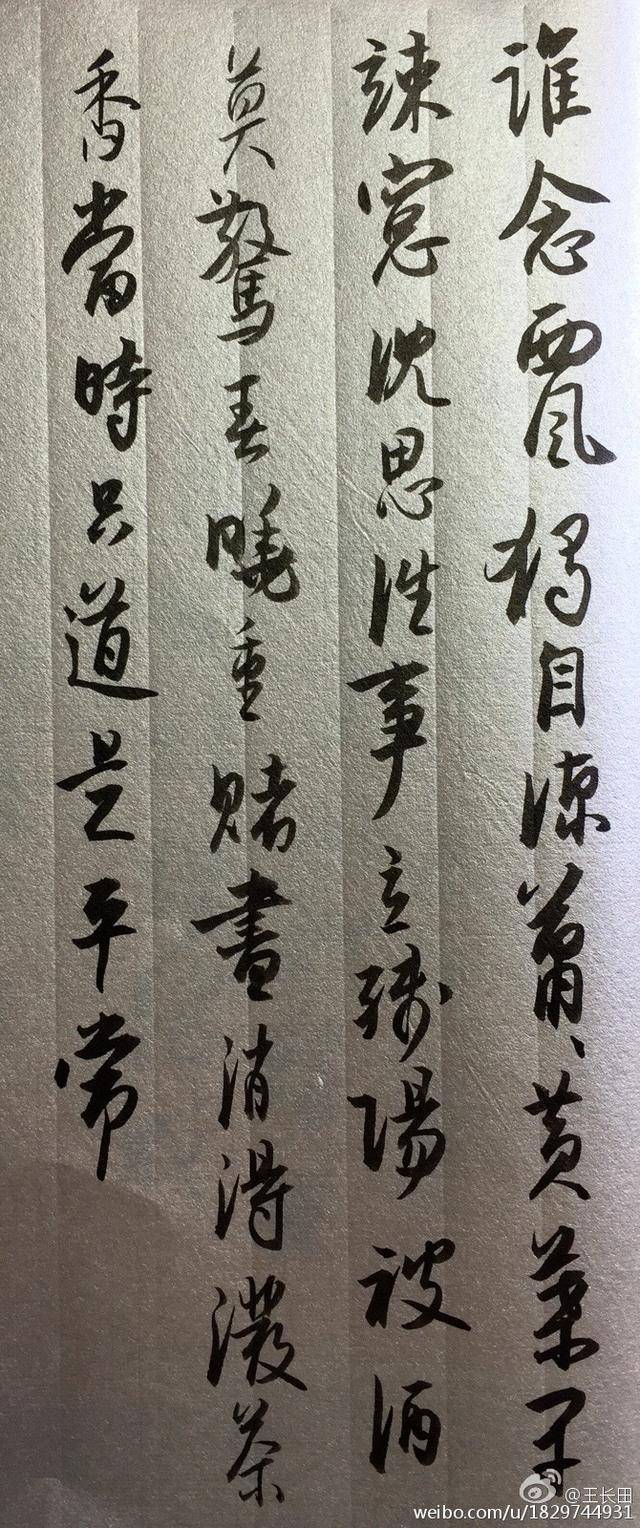 誰念西風獨自涼蕭、黄葉閉
疎窓沈思往事立殘陽被酒
莫驚春曉重賭書消得潑茶
香當時只道是平常
@王长田
weibo.com/u/1829744931